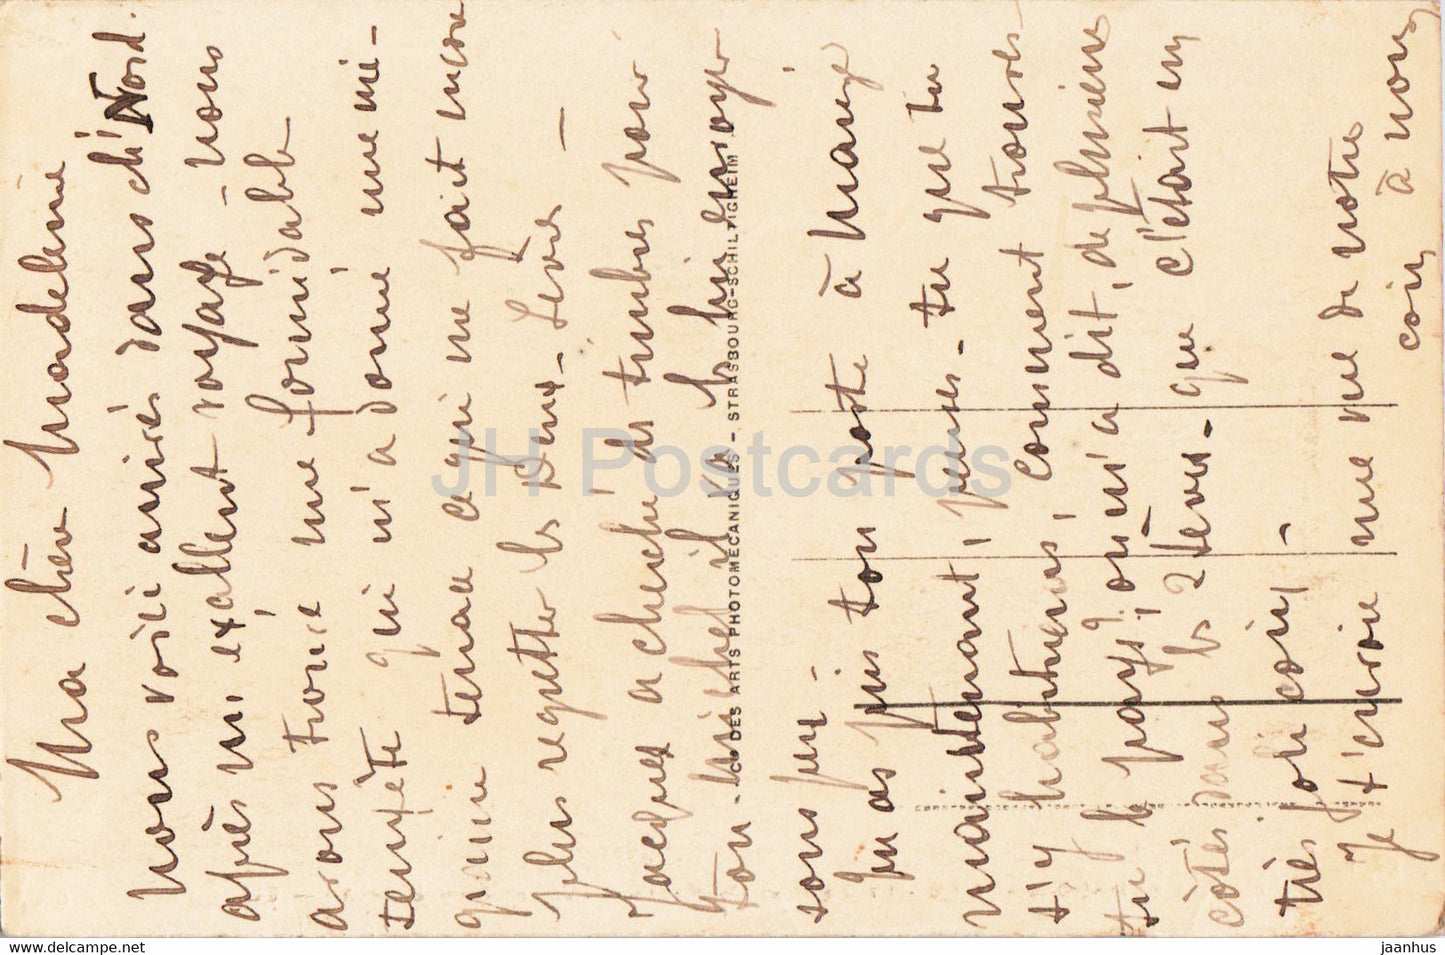 Ma chère Madeleine
Nous voici arrivés dans ch' Nord.
après un exallent voyage - nous
avons trouvé une formidable
tempète qui m'a donné une mi-
graine tenace qui me fait encore
plus regretter les Deux-Sèvres -
Jacques a cherché des timbres pour
ton Michel il va les lui envoyer
sous peu -
Tu as pris ton poste à
maintenant, penses-tu que tu
t'y habitueras, comment trouves-
tu le pays? on m'a dit, de plusieurs
côtés dans les 2 Sèvres - que c'était un
très joli coin -
Je t'envoie une vue de notre
coin à nous
- CIE DES ARTS PHOTOMÉCANIQUES - STRASBOURG-SCHILTIGHEIM -
JH Postcards
www.delcampe.net
jaanhus